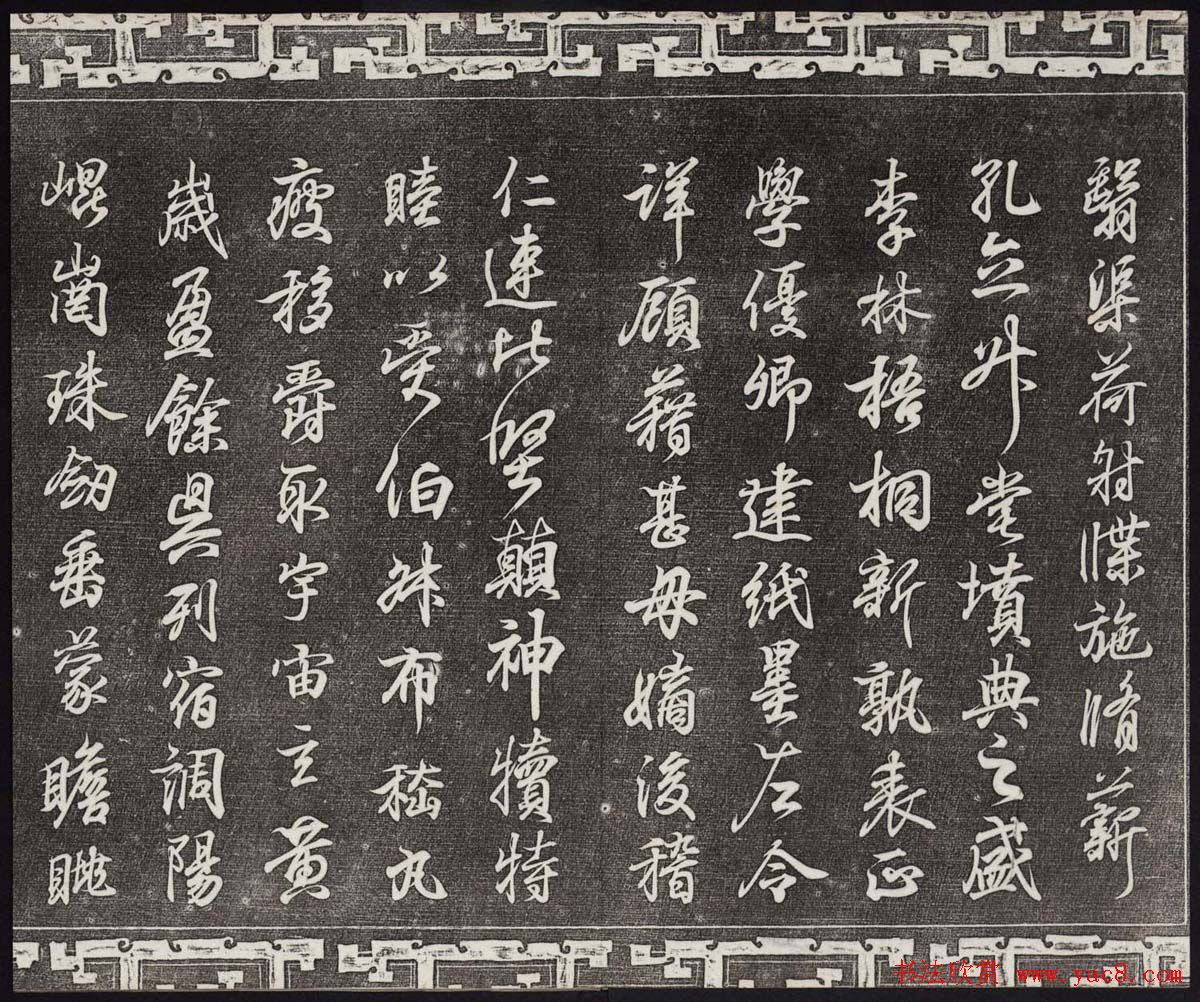 翳渠荷射牒施脩薪
孔立升堂墳典之盛
李林梧桐新孰表正
學優卿建紙星左令
詳顧藉甚毋嫡後稽
仁連比堅顛神犢特
睦以受伯叔布嵇丸
疲移爵取宇宙玄黃
歲盈餘具列宿調陽
崐崗珠劍垂蒙瞻眺
书法欣赏 www.yac8.com